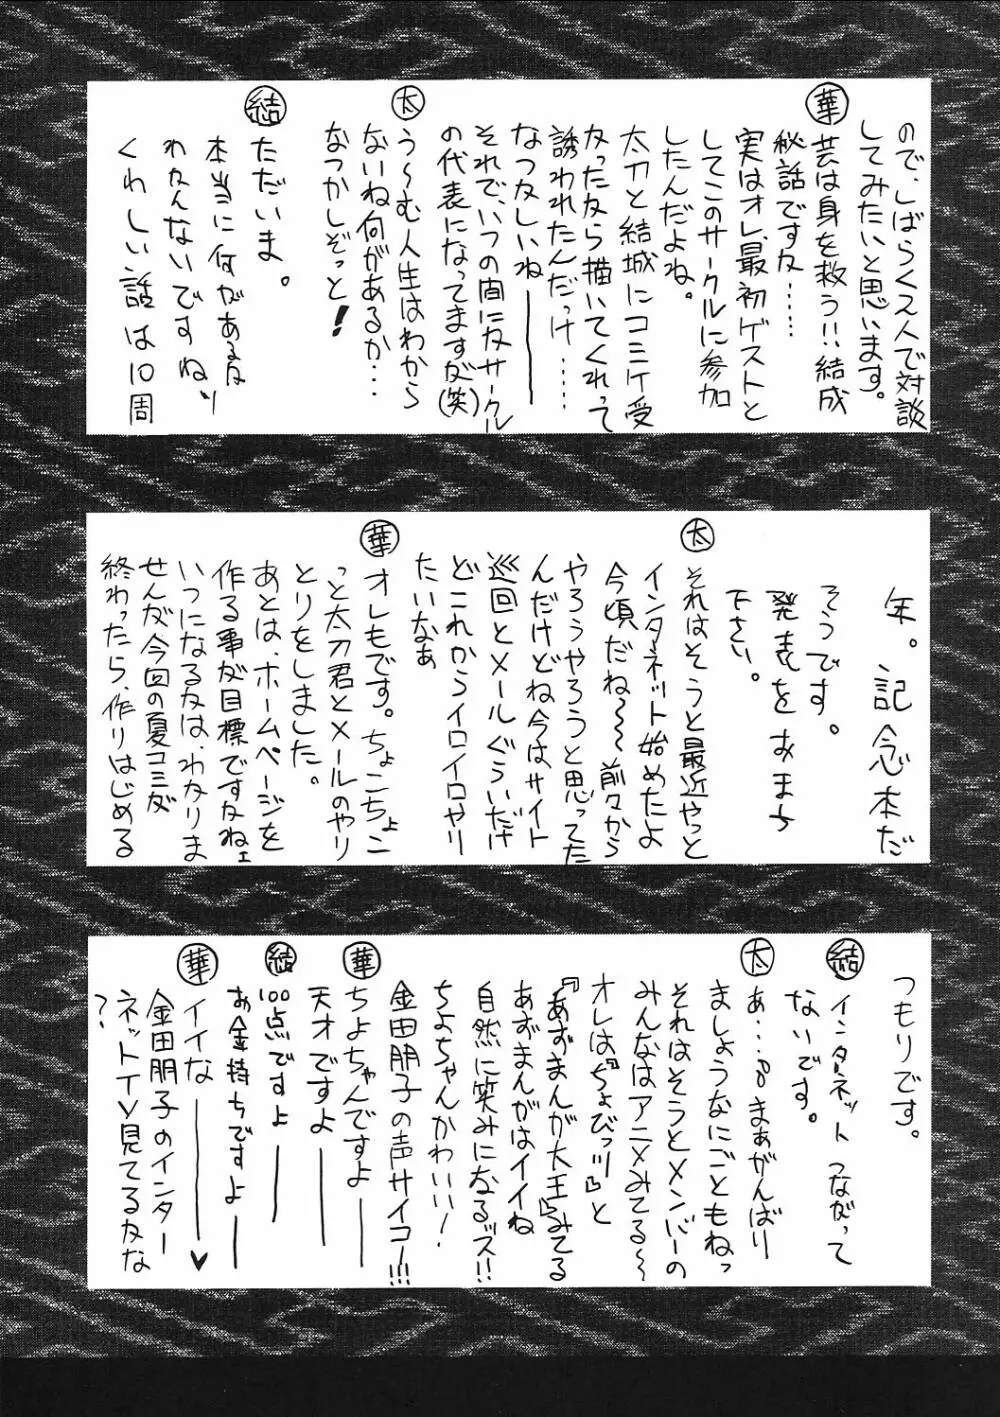 ので、しばらく2人で対談
してみたいと思います。
華 芸は身を救う!!結成
秘話ですな……
実はオレ、最初ゲストと
してこのサークルに参加
したんだよね。
太刀と結城にコミケ受
かったから描いてくれって
誘われたんだっけ……
なつかしいね――
それで、いつの間にかサークル
の代表になってますが(笑)
太 う〜む人生はわから
ないね何があるか…
なつかしぞっと!
結 ただいま。
本当に何があるか
わかんないですねッ
くわしい話は10周
年。記念本だ
そうです。
発表をおまち
下さい。
太 それはそうと最近やっと
インタネット始めたよ
今頃だね〜〜前々から
やろうやろうと思ってた
んだけどね今はサイト
巡回とメールぐらいだけ
どこれからイロイロやり
たいなぁ
華 オレもです。ちょこちょこ
っと太刀君とメールのやり
とりをしました。
あとは、ホームページを
作る事が目標ですかねェ
いつになるかは、わかりま
せんが今回の夏コミが
終わったら、作りはじめる
つもりです。
結 インターネットつながって
ないです。
太 あ…。まぁがんばり
ましょうなにごともねっ
それはそうとメンバーの
みんなはアニメみてる〜
オレは『ちょびっツ』と
『あずまんが大王』みてる
あずまんがはイイね
自然に笑みになるッス!!
ちよちゃんかわいい!
金田朋子の声サイコー!!!
華 ちよちゃんですよ――
天才ですよ――
結 100点ですよ――
お金持ちですよ――
華 イイな――♥
金田朋子のインター
ネットTV見てるかな
?